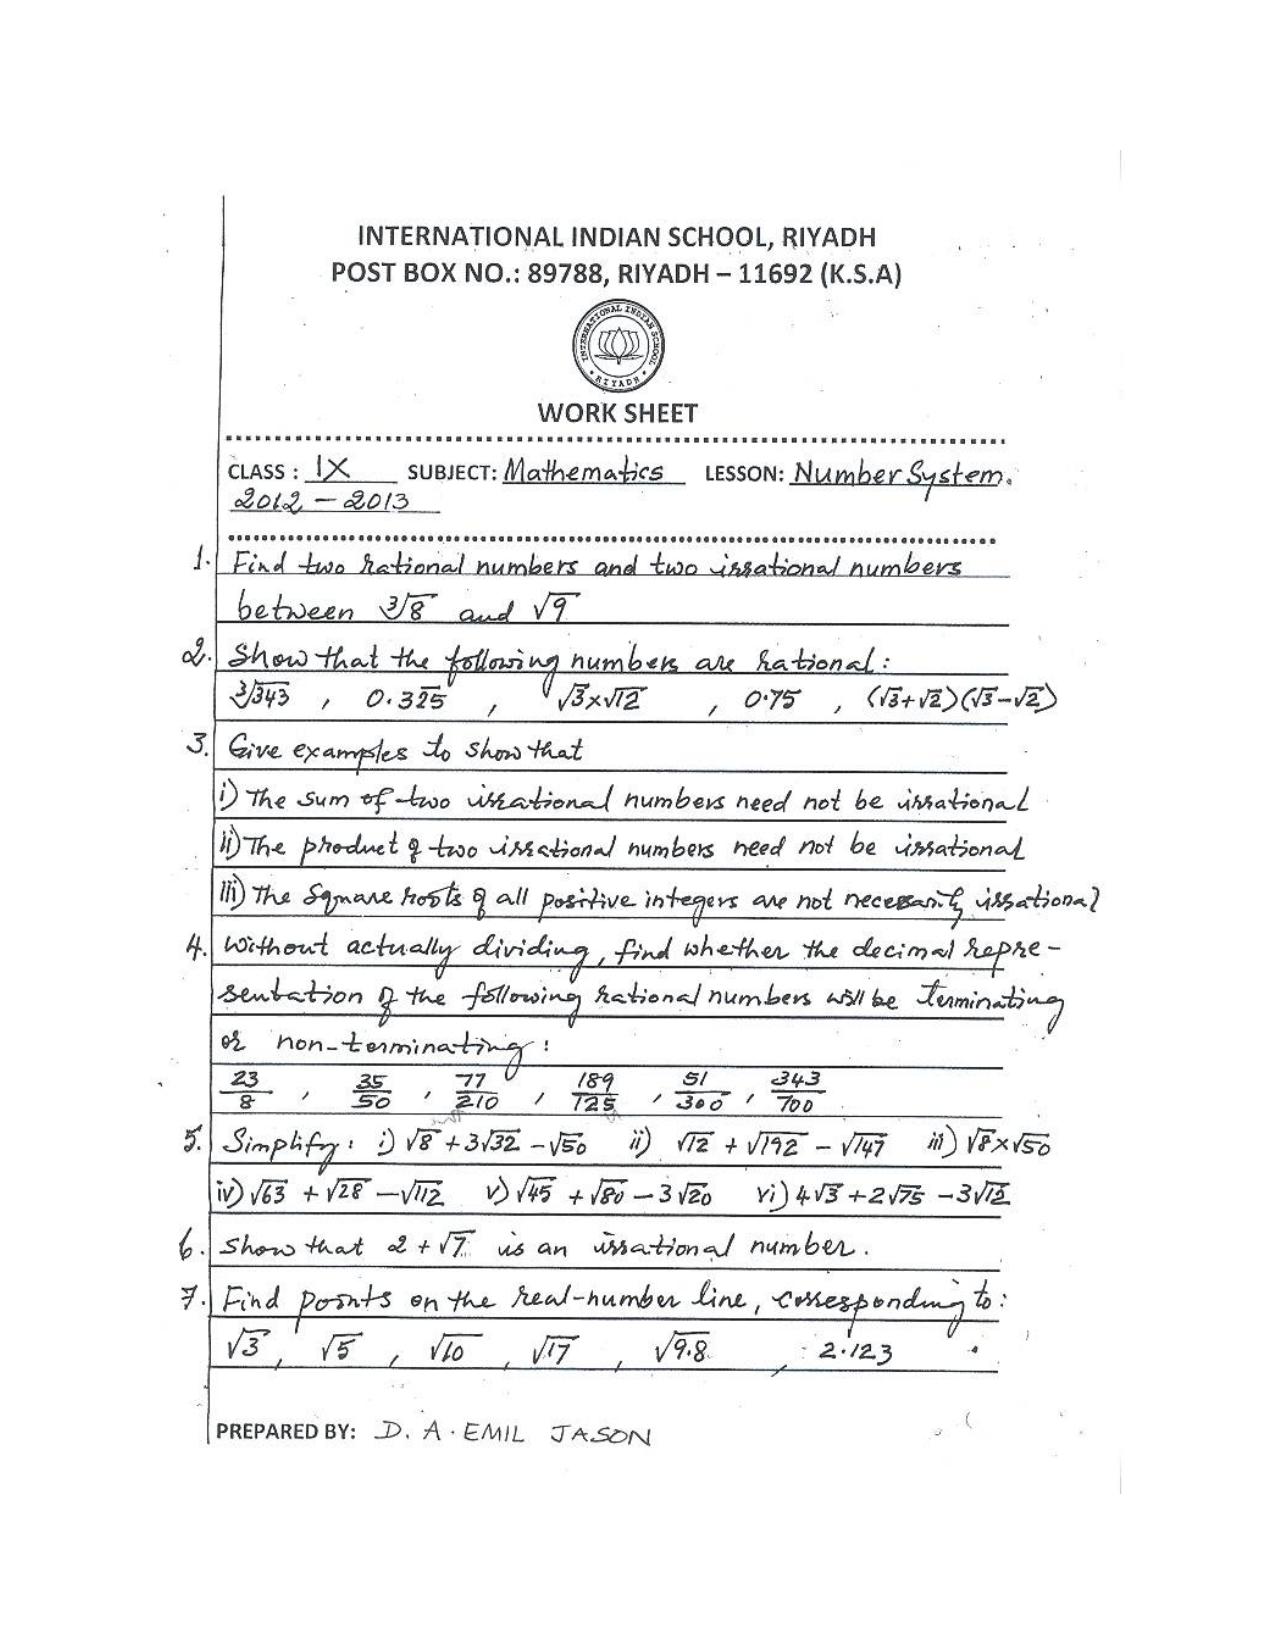 INTERNATIONAL INDIAN SCHOOL, RIYADH
POST BOX NO.: 89788, RIYADH – 11692 (K.S.A)
INTERNATIONAL INDIAN SCHOOL
• RIYADH •
WORK SHEET
CLASS : IX SUBJECT: Mathematics LESSON: Number System.
2012 – 2013
1. Find two rational numbers and two irrational numbers
between ∛8 and √9
2. Show that the following numbers are rational:
∛343 , 0.32̅5̅ , √3×√12 , 0.75 , (√3+√2)(√3–√2)
3. Give examples to show that
i) The sum of two irrational numbers need not be irrational
ii) The product of two irrational numbers need not be irrational
iii) The square roots of all positive integers are not necessarily irrational
4. Without actually dividing, find whether the decimal repre-
sentation of the following rational numbers will be terminating
or non-terminating:
23/8 , 35/50 , 77/210 , 189/125 , 51/300 , 343/700
5. Simplify: i) √8 + 3√32 – √50 ii) √12 + √192 – √147 iii) √8×√50
iv) √63 + √28 – √112 v) √45 + √80 – 3√20 vi) 4√3 + 2√75 – 3√12
6. Show that 2 + √7 is an irrational number.
7. Find points on the real-number line, corresponding to:
√3 , √5 , √10 , √17 , √9.8 , 2.123 .
PREPARED BY: D. A. EMIL JASON